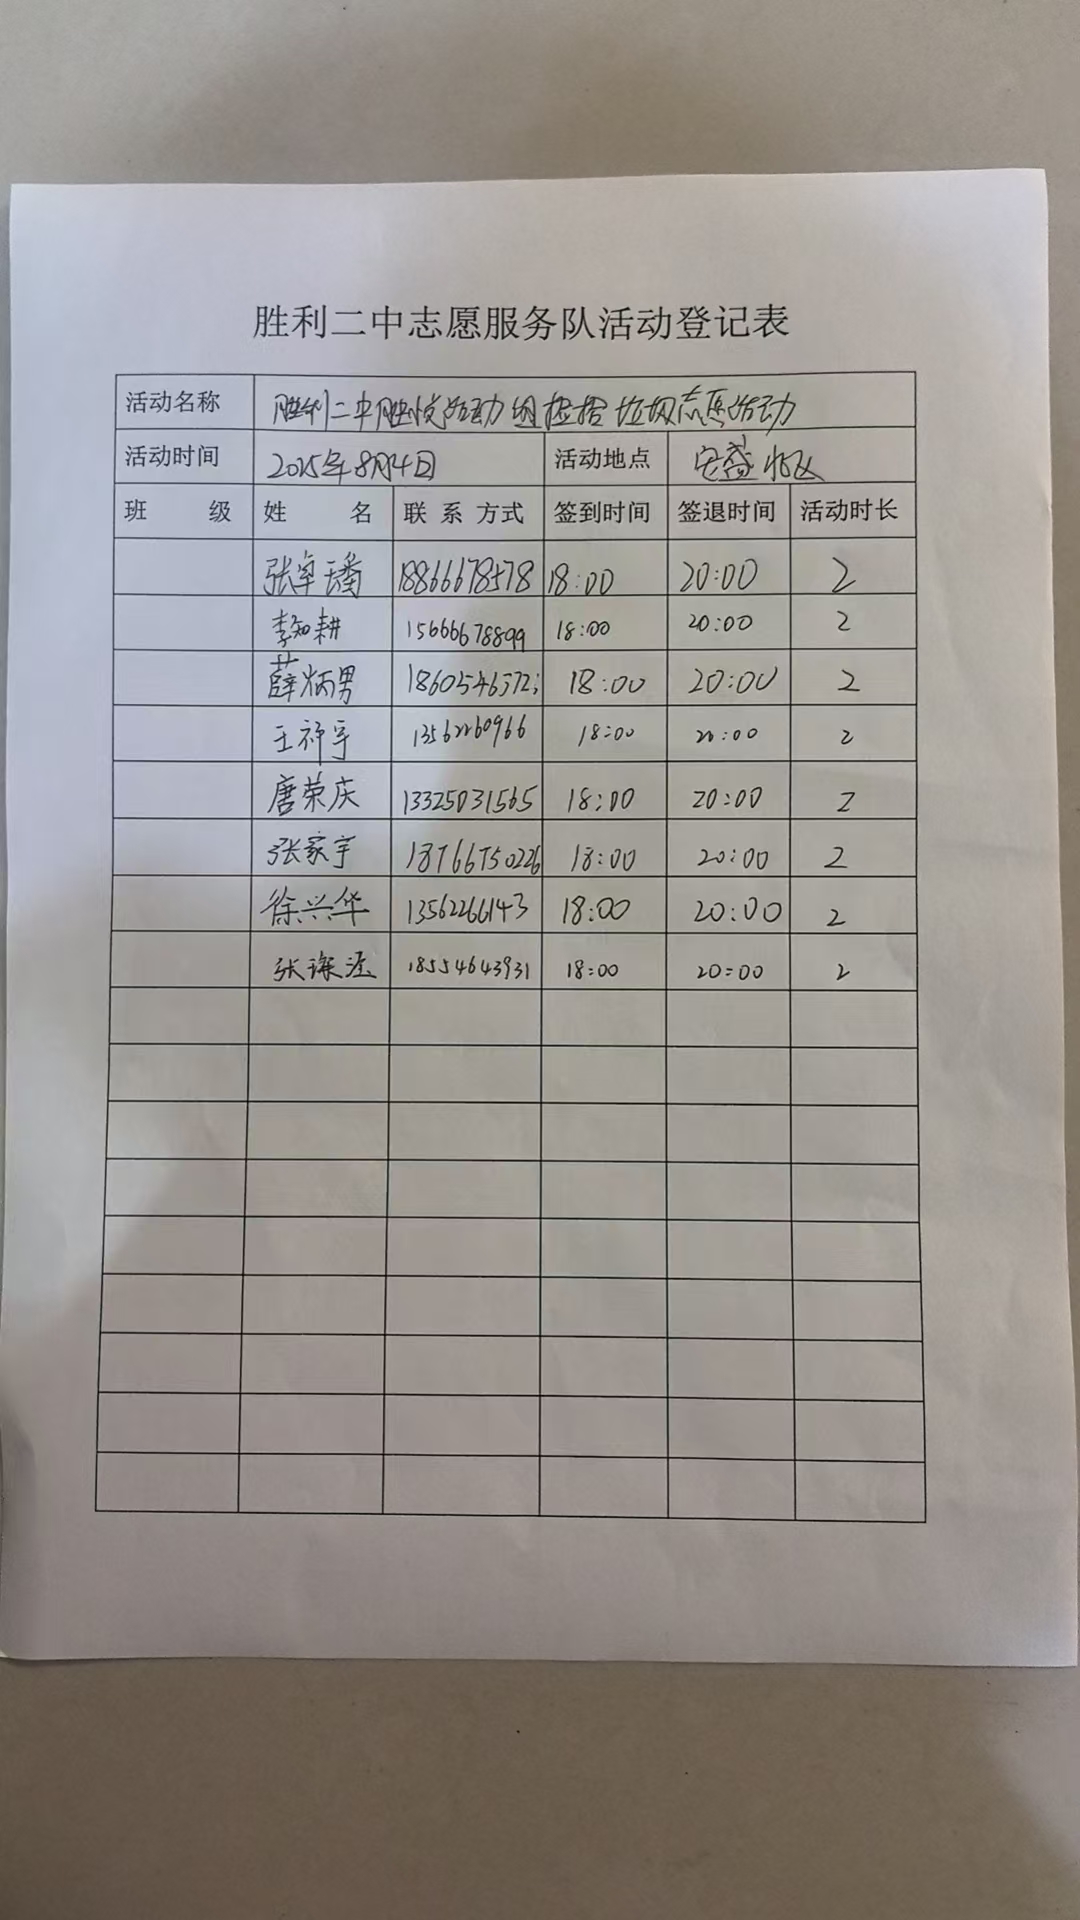 胜利二中志愿服务队活动登记表
活动名称 胜利二中胜悦活动组捡拾垃圾志愿活动
活动时间 2025年8月4日 活动地点 安盛小区
班 级 姓 名 联 系 方式 签到时间 签退时间 活动时长
张卓璠 18866678578 18:00 20:00 2
李知耕 15666678899 18:00 20:00 2
薛炳男 18:00 20:00 2
王祥宇 13562260966 18:00 20:00 2
唐荣庆 13325031565 18:00 20:00 2
张家宇 18766750226 18:00 20:00 2
徐兴华 13562266143 18:00 20:00 2
张 18554643931 18:00 20:00 2